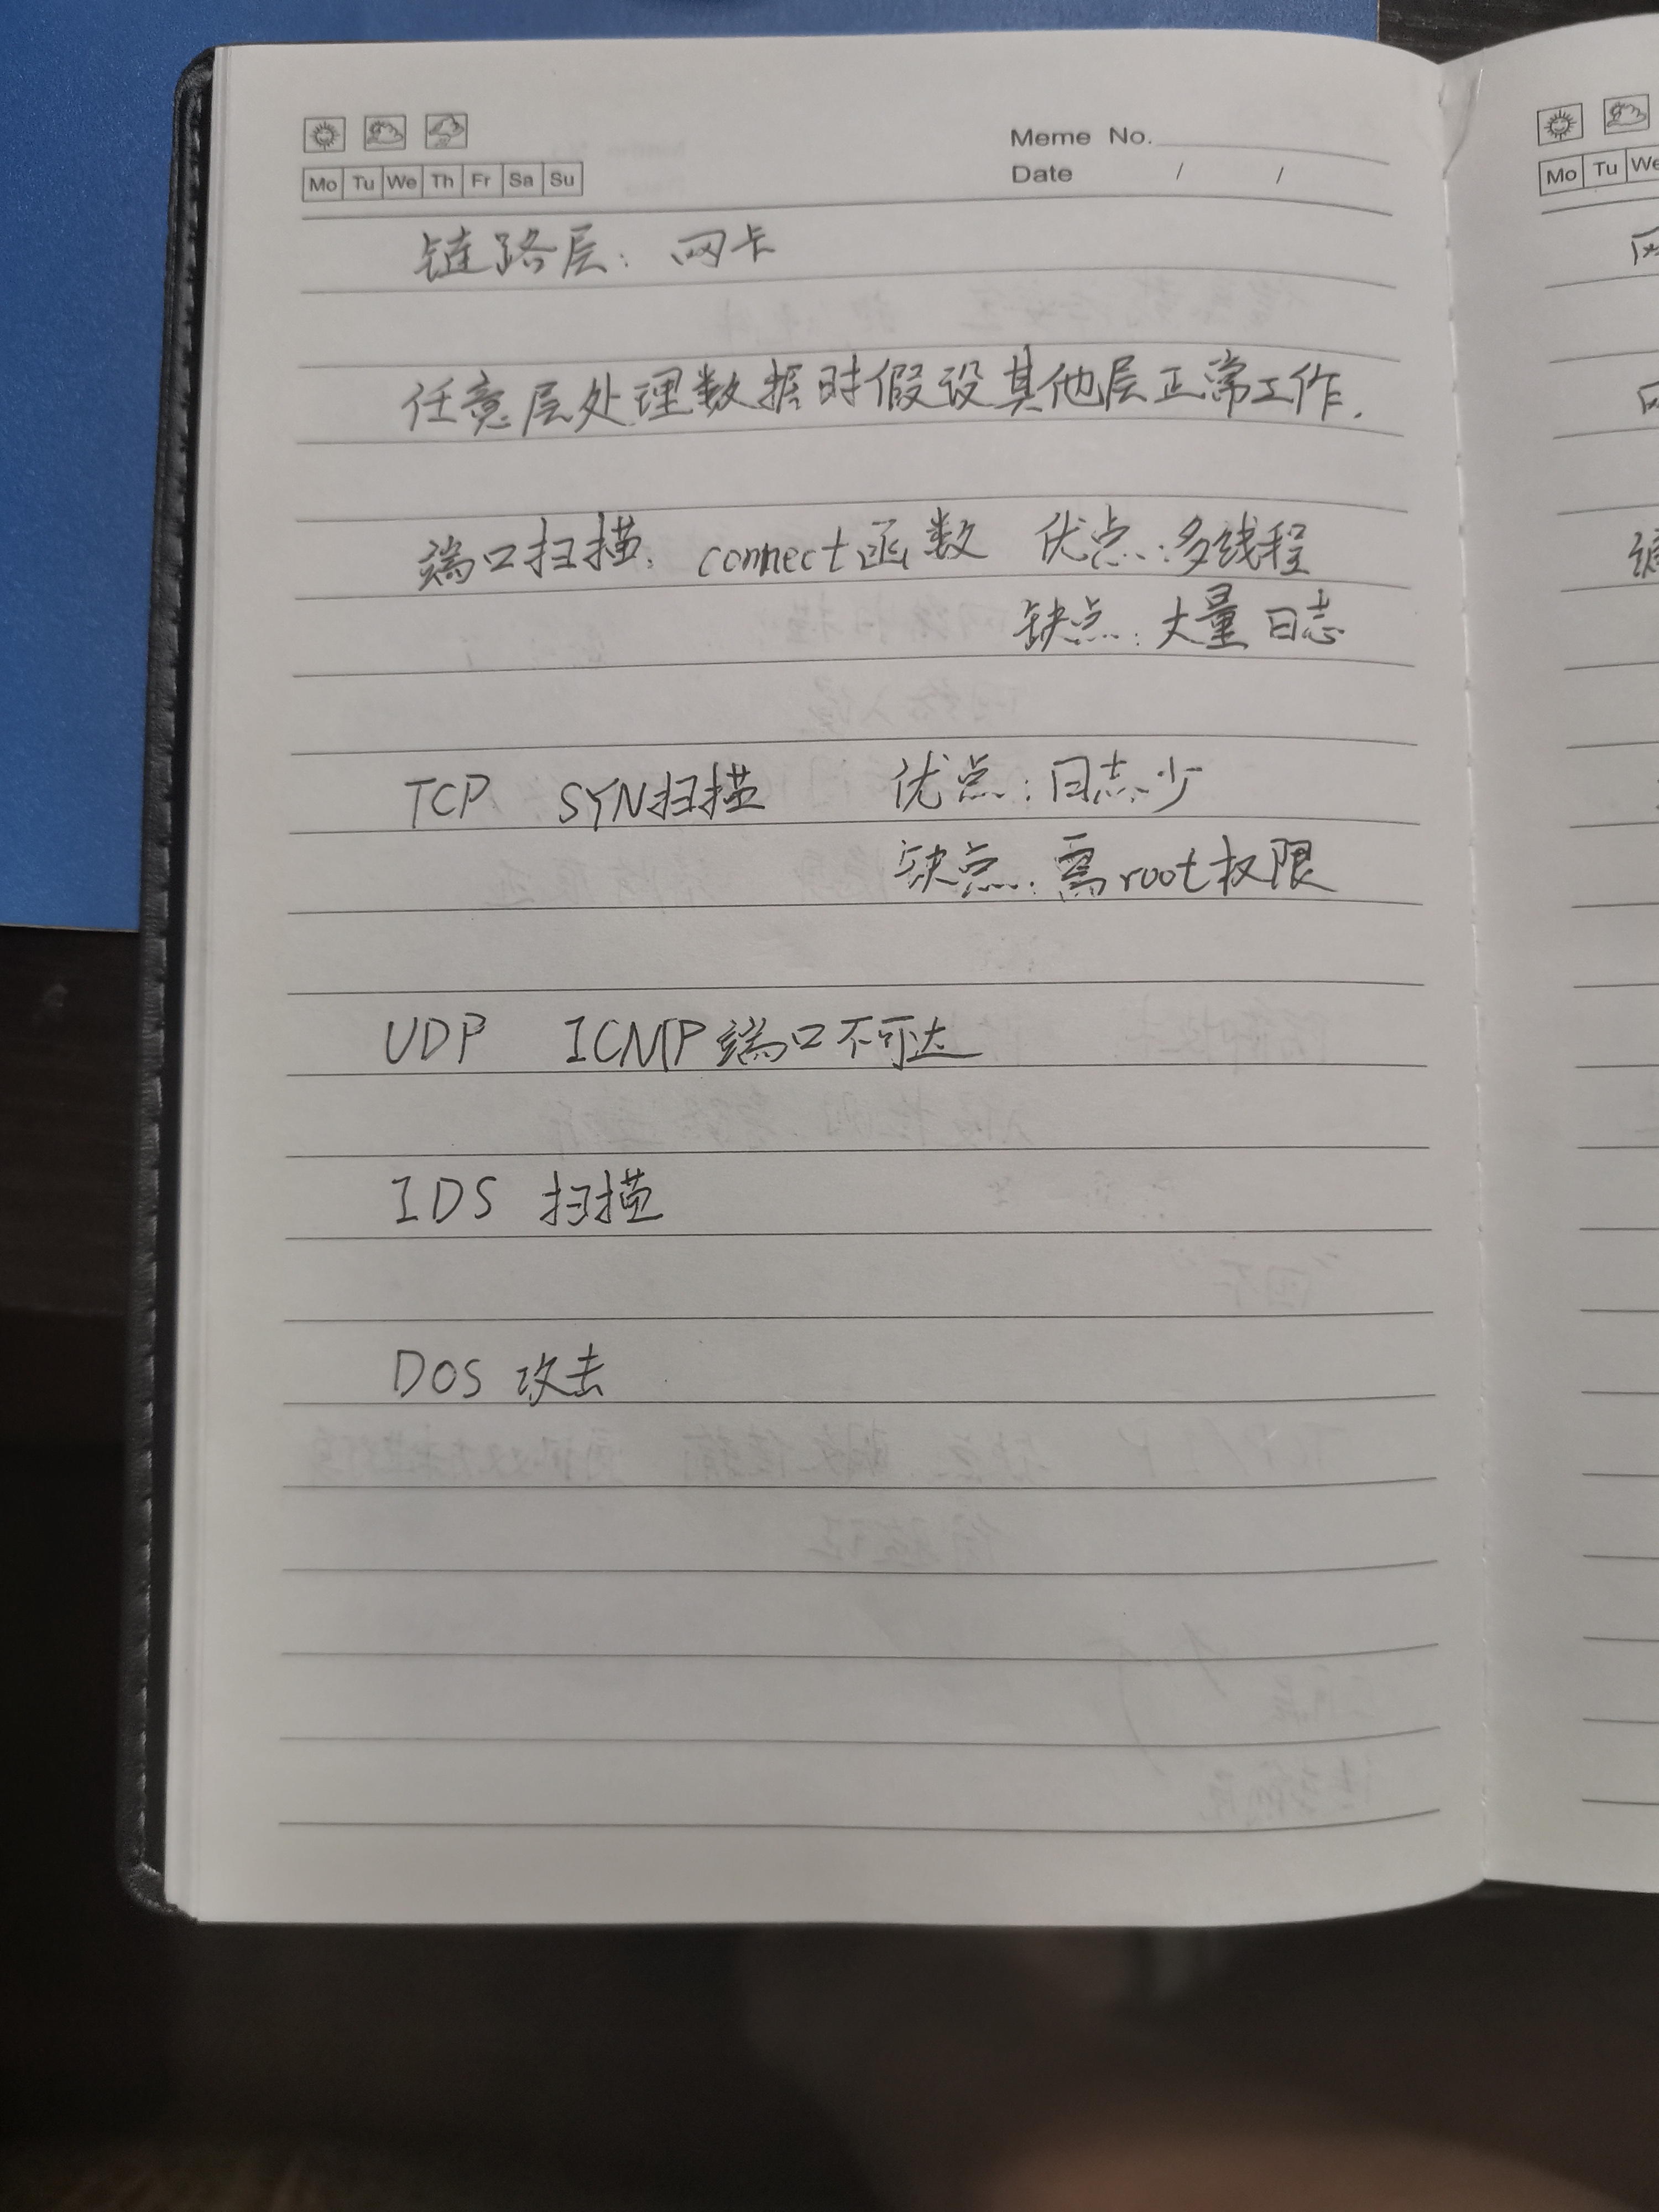 Meme No.
Date / /
Mo Tu We Th Fr Sa Su
链路层: 网卡
任意层处理数据时假设其他层正常工作.
端口扫描. connect函数 优点:多线程
缺点:大量日志
TCP SYN扫描 优点:日志少
缺点:需root权限
UDP ICMP端口不可达
IDS 扫描
DOS 攻击
Mo Tu We